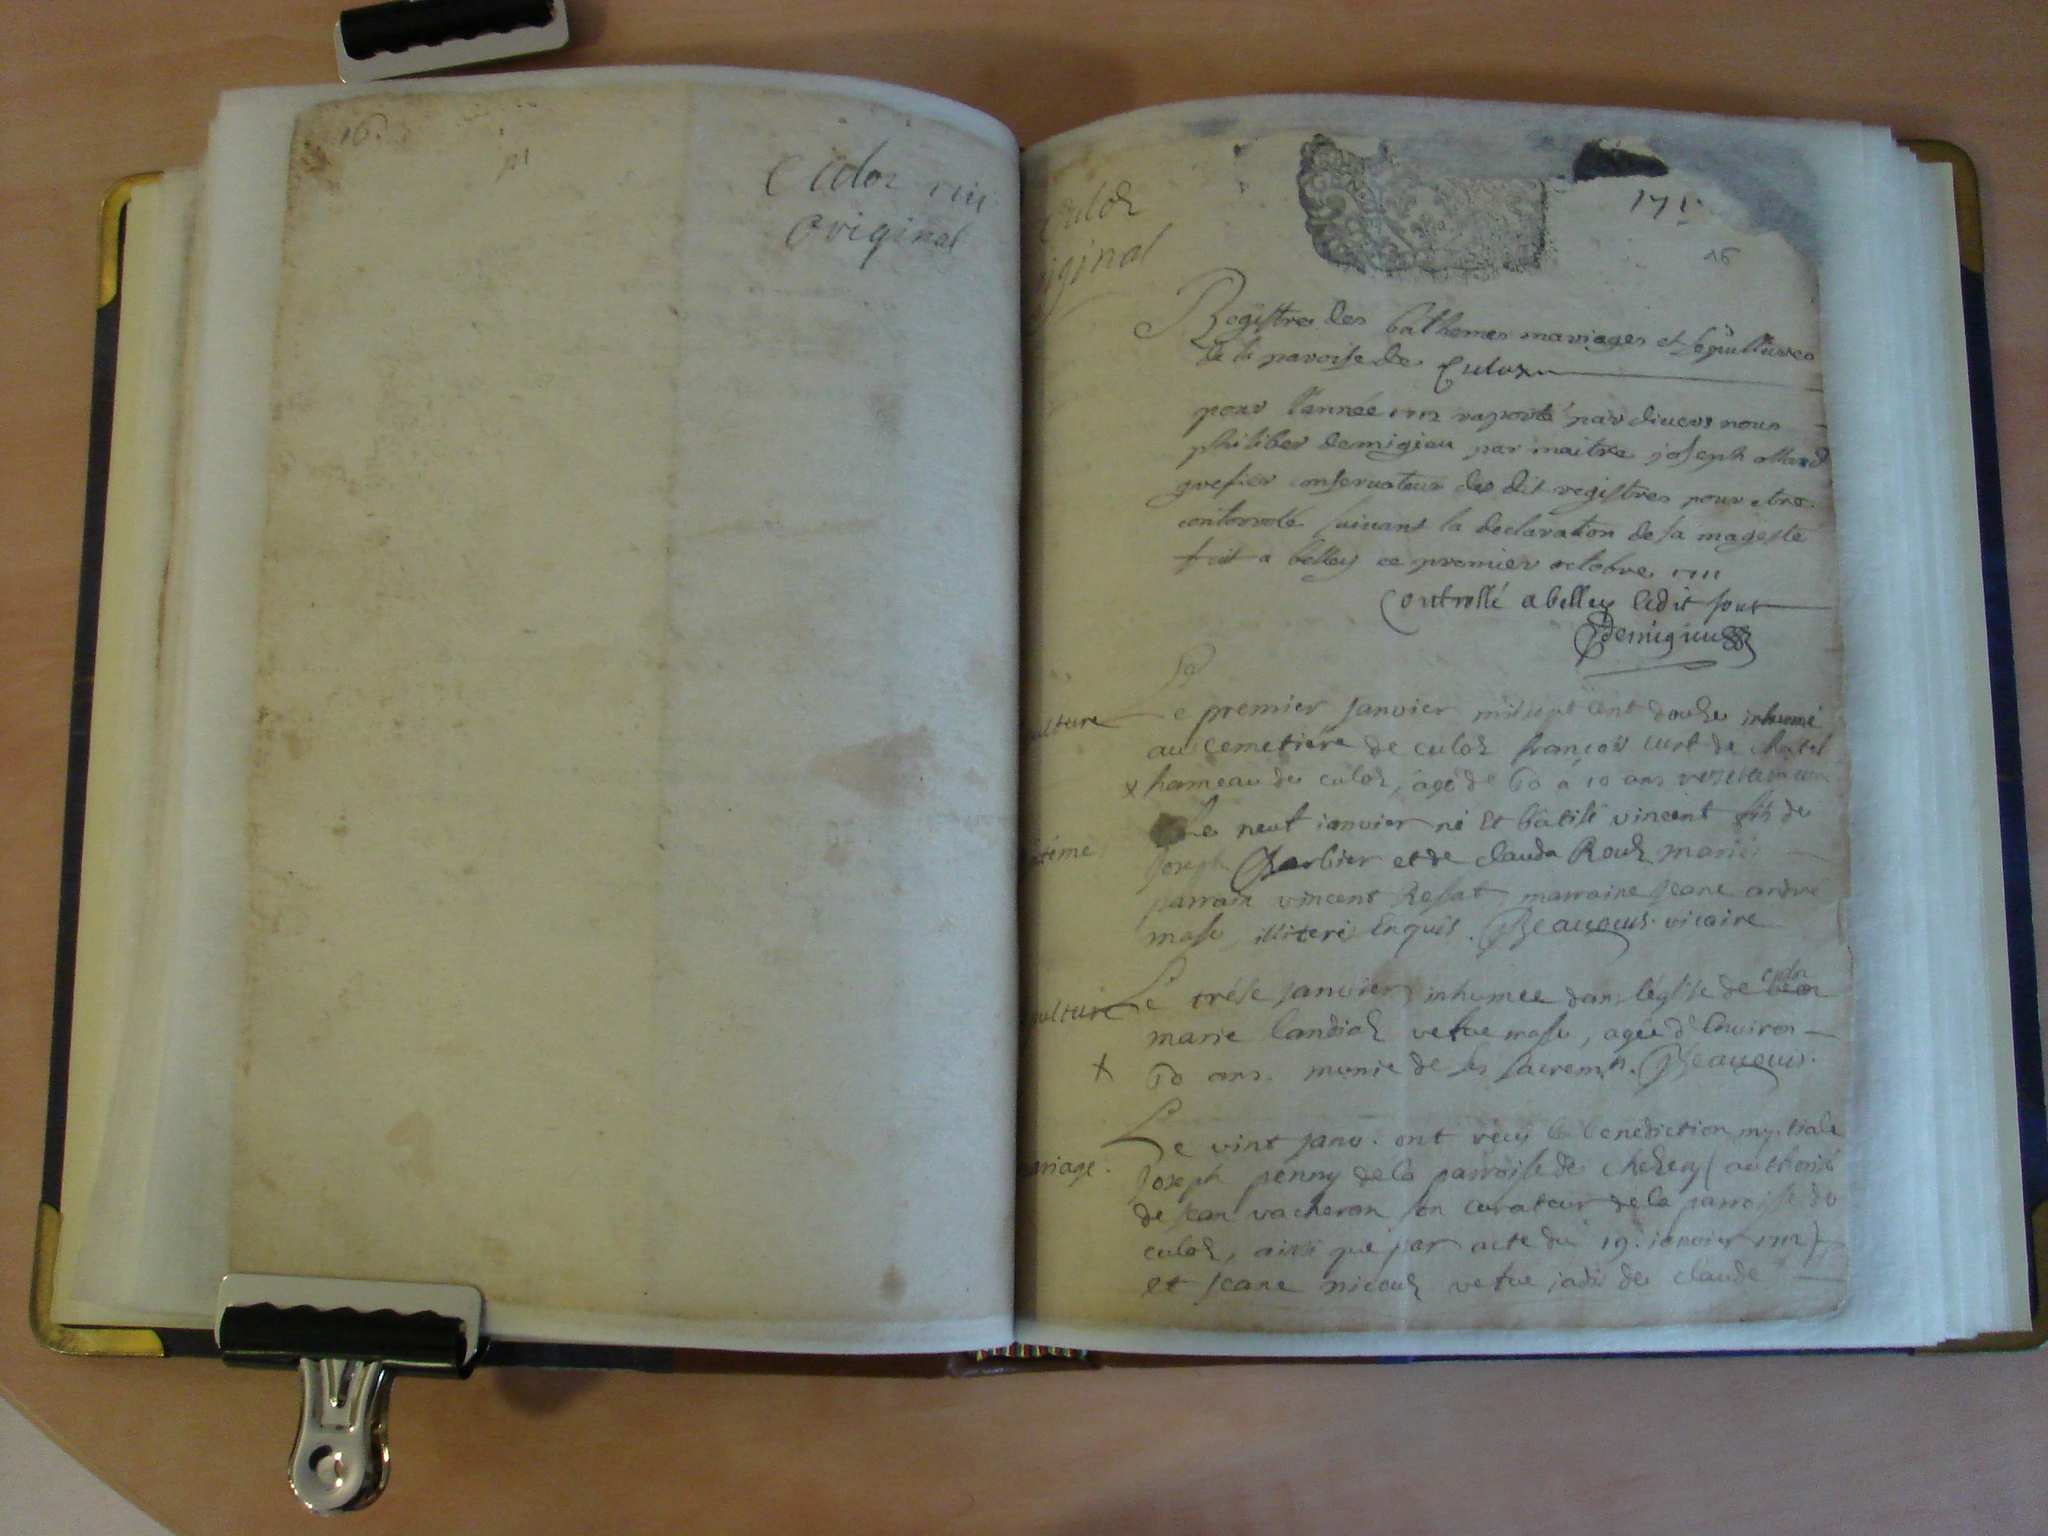 16
Culoz
original
Culoz
iginal
171
16
Registres des bathemes mariages et sepultures
de la paroisse de Culoz
pour l'année 1712 raporté par divers nous
philiber demigieu par maitre joseph allard
grefier conservateur des dit registres pour etre
controole suivant la declaration de sa magesté
fait a belley ce premier octobre 1711
Controllé a belley ledit jour
Demigieu
ulture
Le premier janvier mil sept cent douze inhumé
au cemetiere de culoz françois curt de chatel
x hameau de culoz, agé de 60 a 10 ans
teme
Le neuf janvier né et batisé vincent fils de
joseph Charbier et de clauda Rouz mariés
parrain vincent Ressat, marraine jeane andré
masse, illiteré enquis. Beauquis vicaire
ulture
Le trése janvier inhumée dans léglise de culoz
marie landioz vefve masse, agée d'environ
x 60 ans, munie de ses sacremts. Beauquis.
ariage.
Le vint janv. ont reçu la benediction nuptiale
joseph penny de la parroisse de chezery (authorisé
de jean vacheron son curateur de la parroisse de
culoz, ainsi que par acte du 19. janvier 1712)
et jeane nicouz vefve jadis de claude